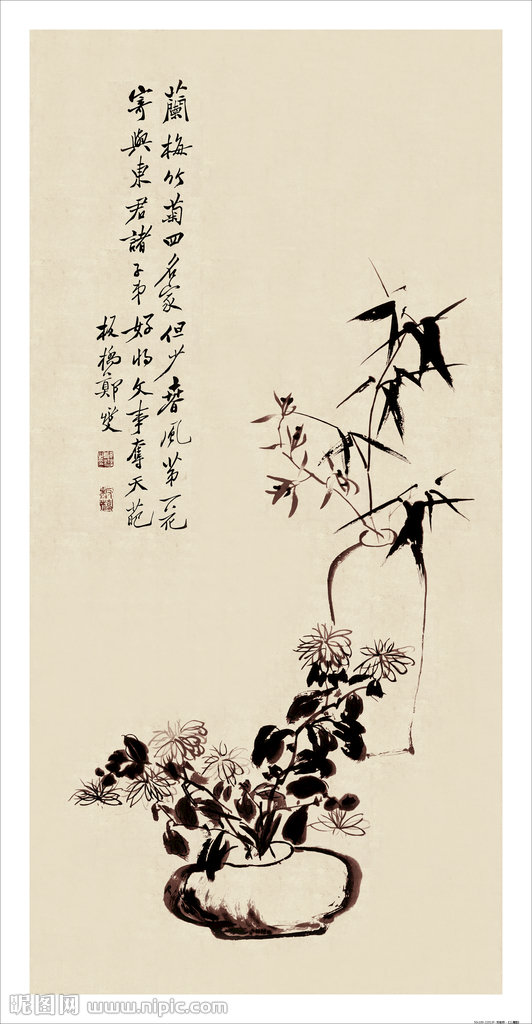 蘭梅竹菊四名家但少春風第一花
寄與東君諸子弟好將文事奪天葩
板橋鄭燮
昵图网 www.nipic.com